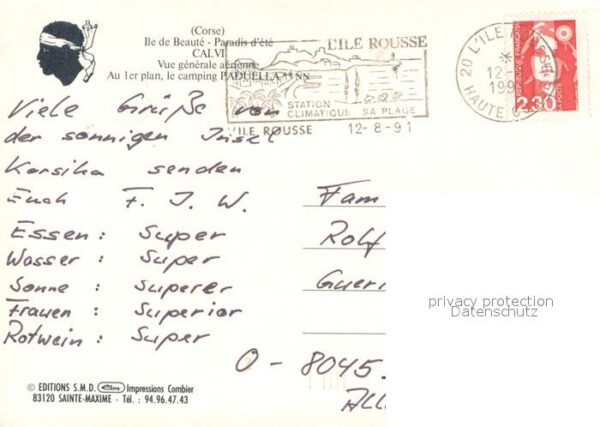 (Corse)
Ile de Beauté - Paradis d'été
CALVI
Vue générale aérienne
Au 1er plan, le camping PADUELLA ** NN
L'ILE ROUSSE
STATION
CLIMATIQUE SA PLAGE
L'ILE ROUSSE 12-8-91
20 L'ILE
12-
199
HAUTE
2,30
Viele Grüße von
der sonnigen Insel
Korsika senden
Euch F. J. W.
Essen: super
Wasser: super
Sonne: superer
Frauen: superior
Rotwein: super
Fam
Rolf
Gueri
O-8045
All
privacy protection
Datenschutz
© EDITIONS S.M.D. Impressions Combier
83120 SAINTE-MAXIME - Tél. : 94.96.47.43